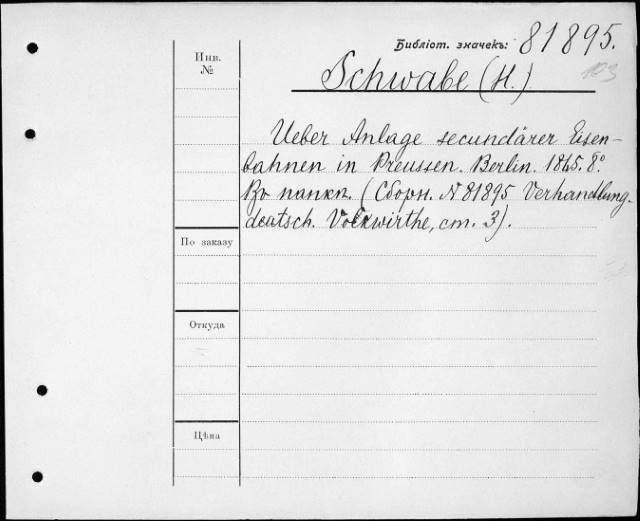 Библіот. значекъ: 81895.
103
Инв.
№
Schwabe (H.)
Ueber Anlage secundärer Eisen-
bahnen in Preussen. Berlin. 1865. 8°.
Въ папкѣ. (Сборн. № 81895 Verhandlung.
deutsch. Volkwirthe, ст. 3).
По заказу
Откуда
Цѣна